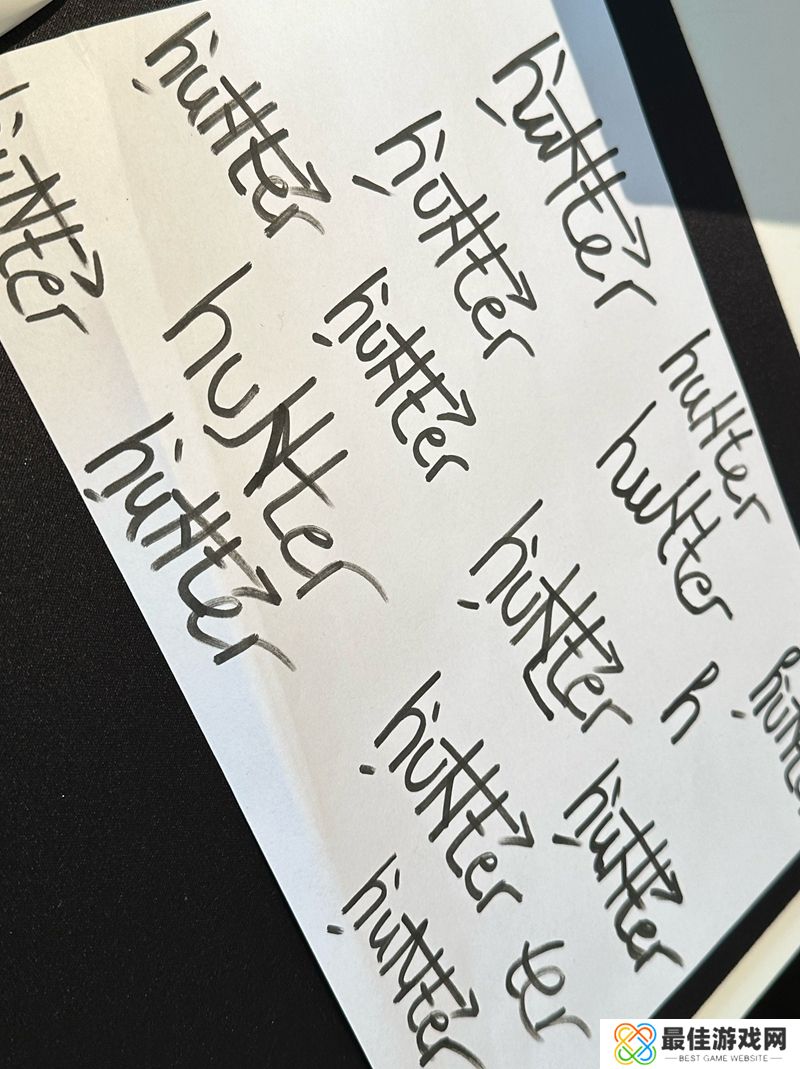 hunter
hunter
hunter
hunter
hunter
hunter
hunter
hunter
hunter
hunter
h
hunter
hunter
hunter
ter
hunter
最佳游戏网
BEST GAME WEBSITE